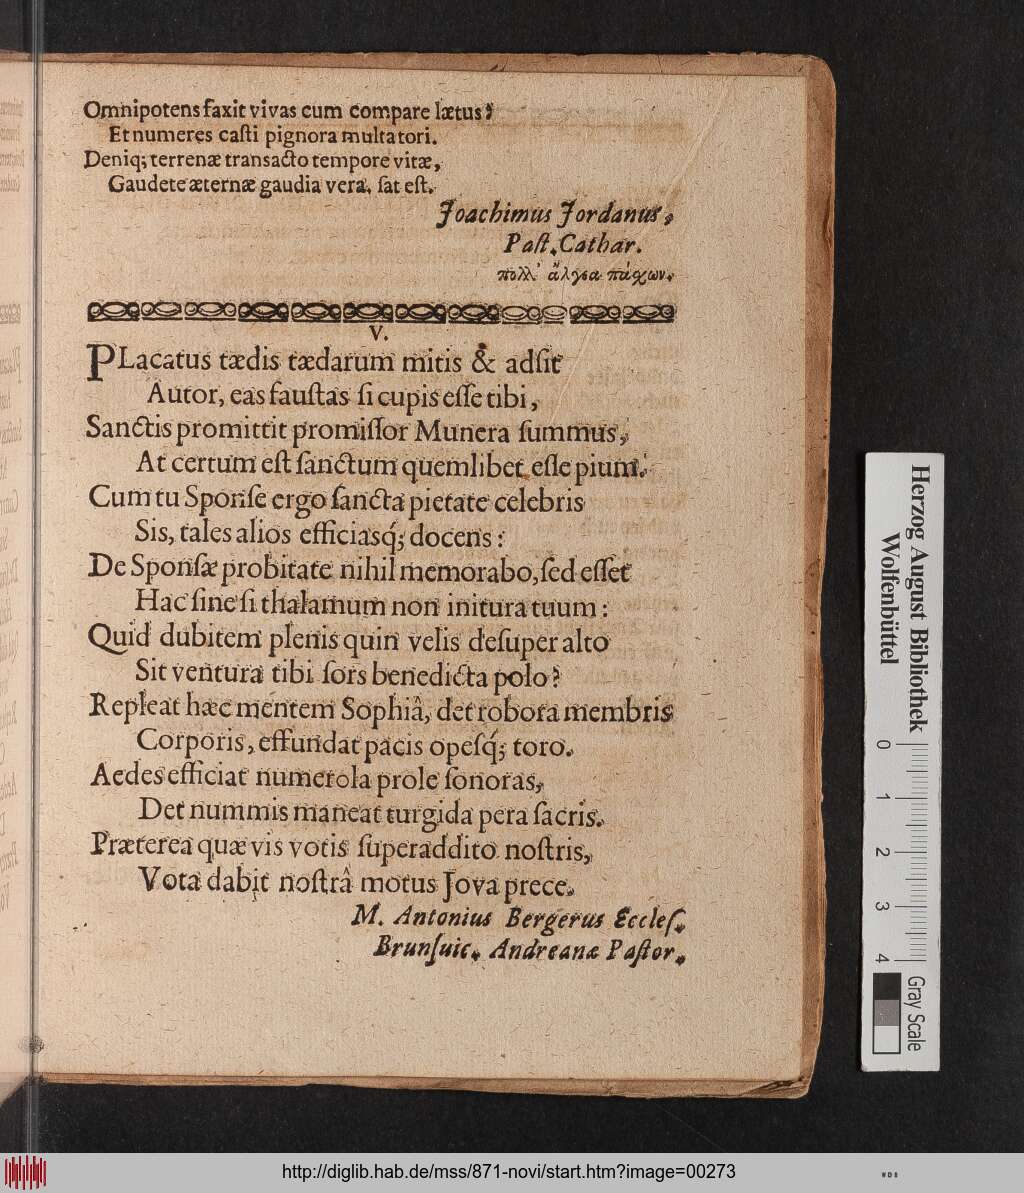 Omnipotens faxit vivas cum compare lætus;
Et numeres casti pignora multa tori.
Deniq; terrenæ transacto tempore vitæ,
Gaudete æternæ gaudia vera, sat est.
Joachimus Jordanus,
Past. Cathar.
πολλ' ἄλγεα πάχων.
V.
PLacatus tædis tædarum mitis & adsit
Autor, eas faustas si cupis esse tibi,
Sanctis promittit promissor Munera summus,
At certum est sanctum quemlibet esse pium.
Cum tu Sponse ergo sancta pietate celebris
Sis, tales alios efficiasq́; docens:
De Sponsæ probitate nihil memorabo, sed esset
Hac sine si thalamum non initura tuum:
Quid dubitem plenis quin velis desuper alto
Sit ventura tibi sors benedicta polo?
Repleat hæc mentem Sophiâ, det robora membris
Corporis, effundat pacis opesq́; toro.
Aedes efficiat numerosa prole sonoras,
Det nummis maneat turgida pera sacris.
Præterea quæ vis votis superaddito nostris,
Vota dabit nostrâ motus Jova prece.
M. Antonius Bergerus Eccles.
Brunsuic. Andreanæ Pastor.
Herzog August Bibliothek
Wolfenbüttel
0 1 2 3 4
Gray Scale
http://diglib.hab.de/mss/871-novi/start.htm?image=00273